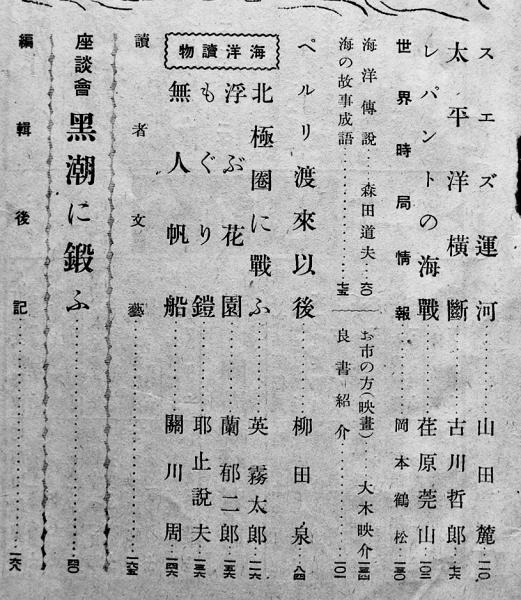 スエズ運河……山田麓 一一〇
太平洋橫斷……古川哲郎 七六
レパントの海戰……荏原莞山 一〇二
世界時局情報……岡本鶴松 一五〇
海洋傳說……森田道夫 六〇
お市の方(映畫)……大木映介 一三四
海の故事成語……七五
良書紹介……一〇一
ペルリ渡來以後……柳田泉 八四
海洋讀物
北極圈に戰ふ……英霧太郎 一一六
浮ぶ花園……蘭郁二郎
もぐり鎧……耶止說夫
無人帆船……關川周
讀者文藝……一六五
座談會 黑潮に鍛ふ……四〇
編輯後記……一六八